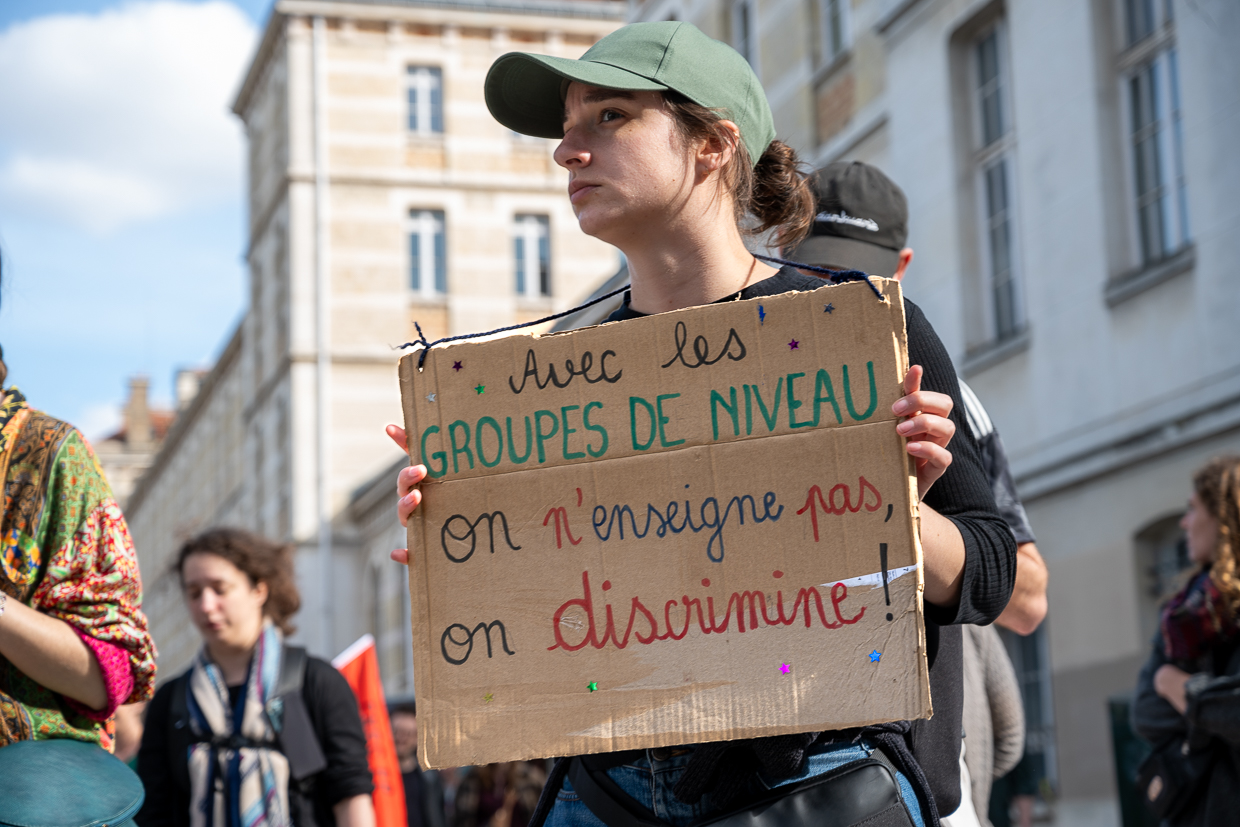 Avec les
GROUPES DE NIVEAU
on n'enseigne pas,
on discrimine !